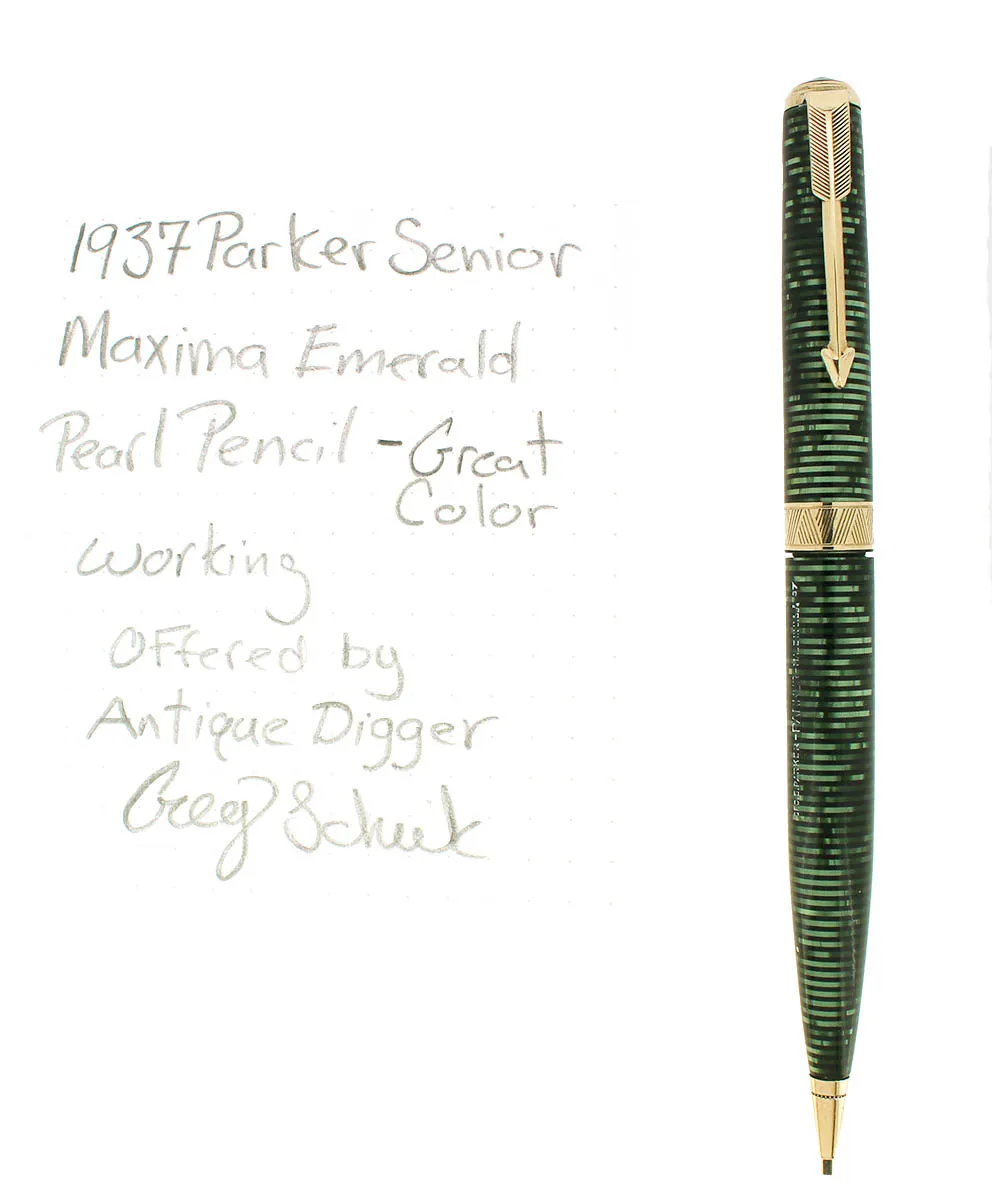 1937 Parker Senior
Maxima Emerald
Pearl Pencil - Great
Color
Working
Offered by
Antique Digger
Greg
PARKER